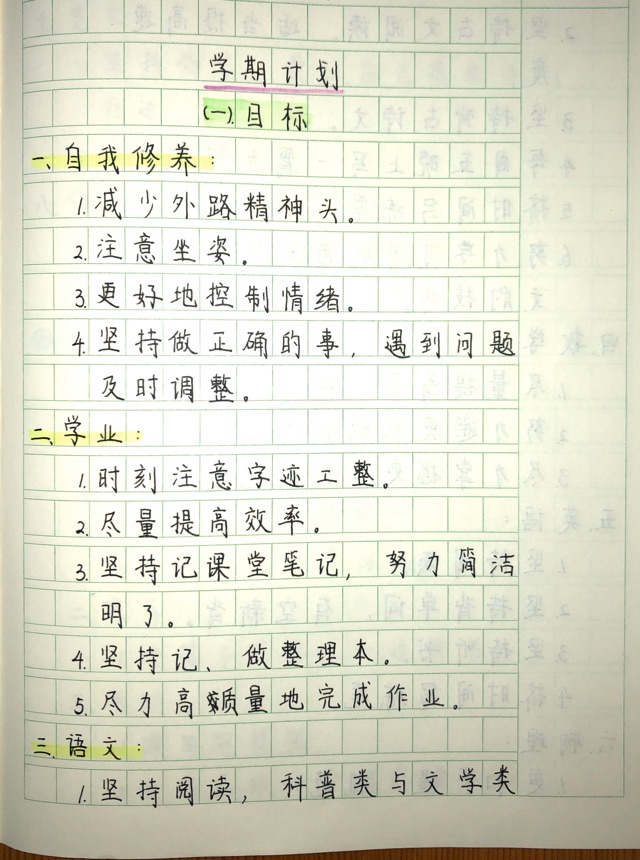 学期计划
(一).目标
一、自我修养:
1.减少外路精神头。
2.注意坐姿。
3.更好地控制情绪。
4.坚持做正确的事,遇到问题
及时调整。
二、学业:
1.时刻注意字迹工整。
2.尽量提高效率。
3.坚持记课堂笔记,努力简洁
明了。
4.坚持记、做整理本。
5.尽力高质量地完成作业。
三、语文:
1.坚持阅读,科普类与文学类